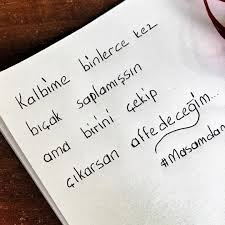 Kalbime binlerce kez
bıçak saplamışsın
ama birini çekip
çıkarsan affedeceğim...
#Masamdan